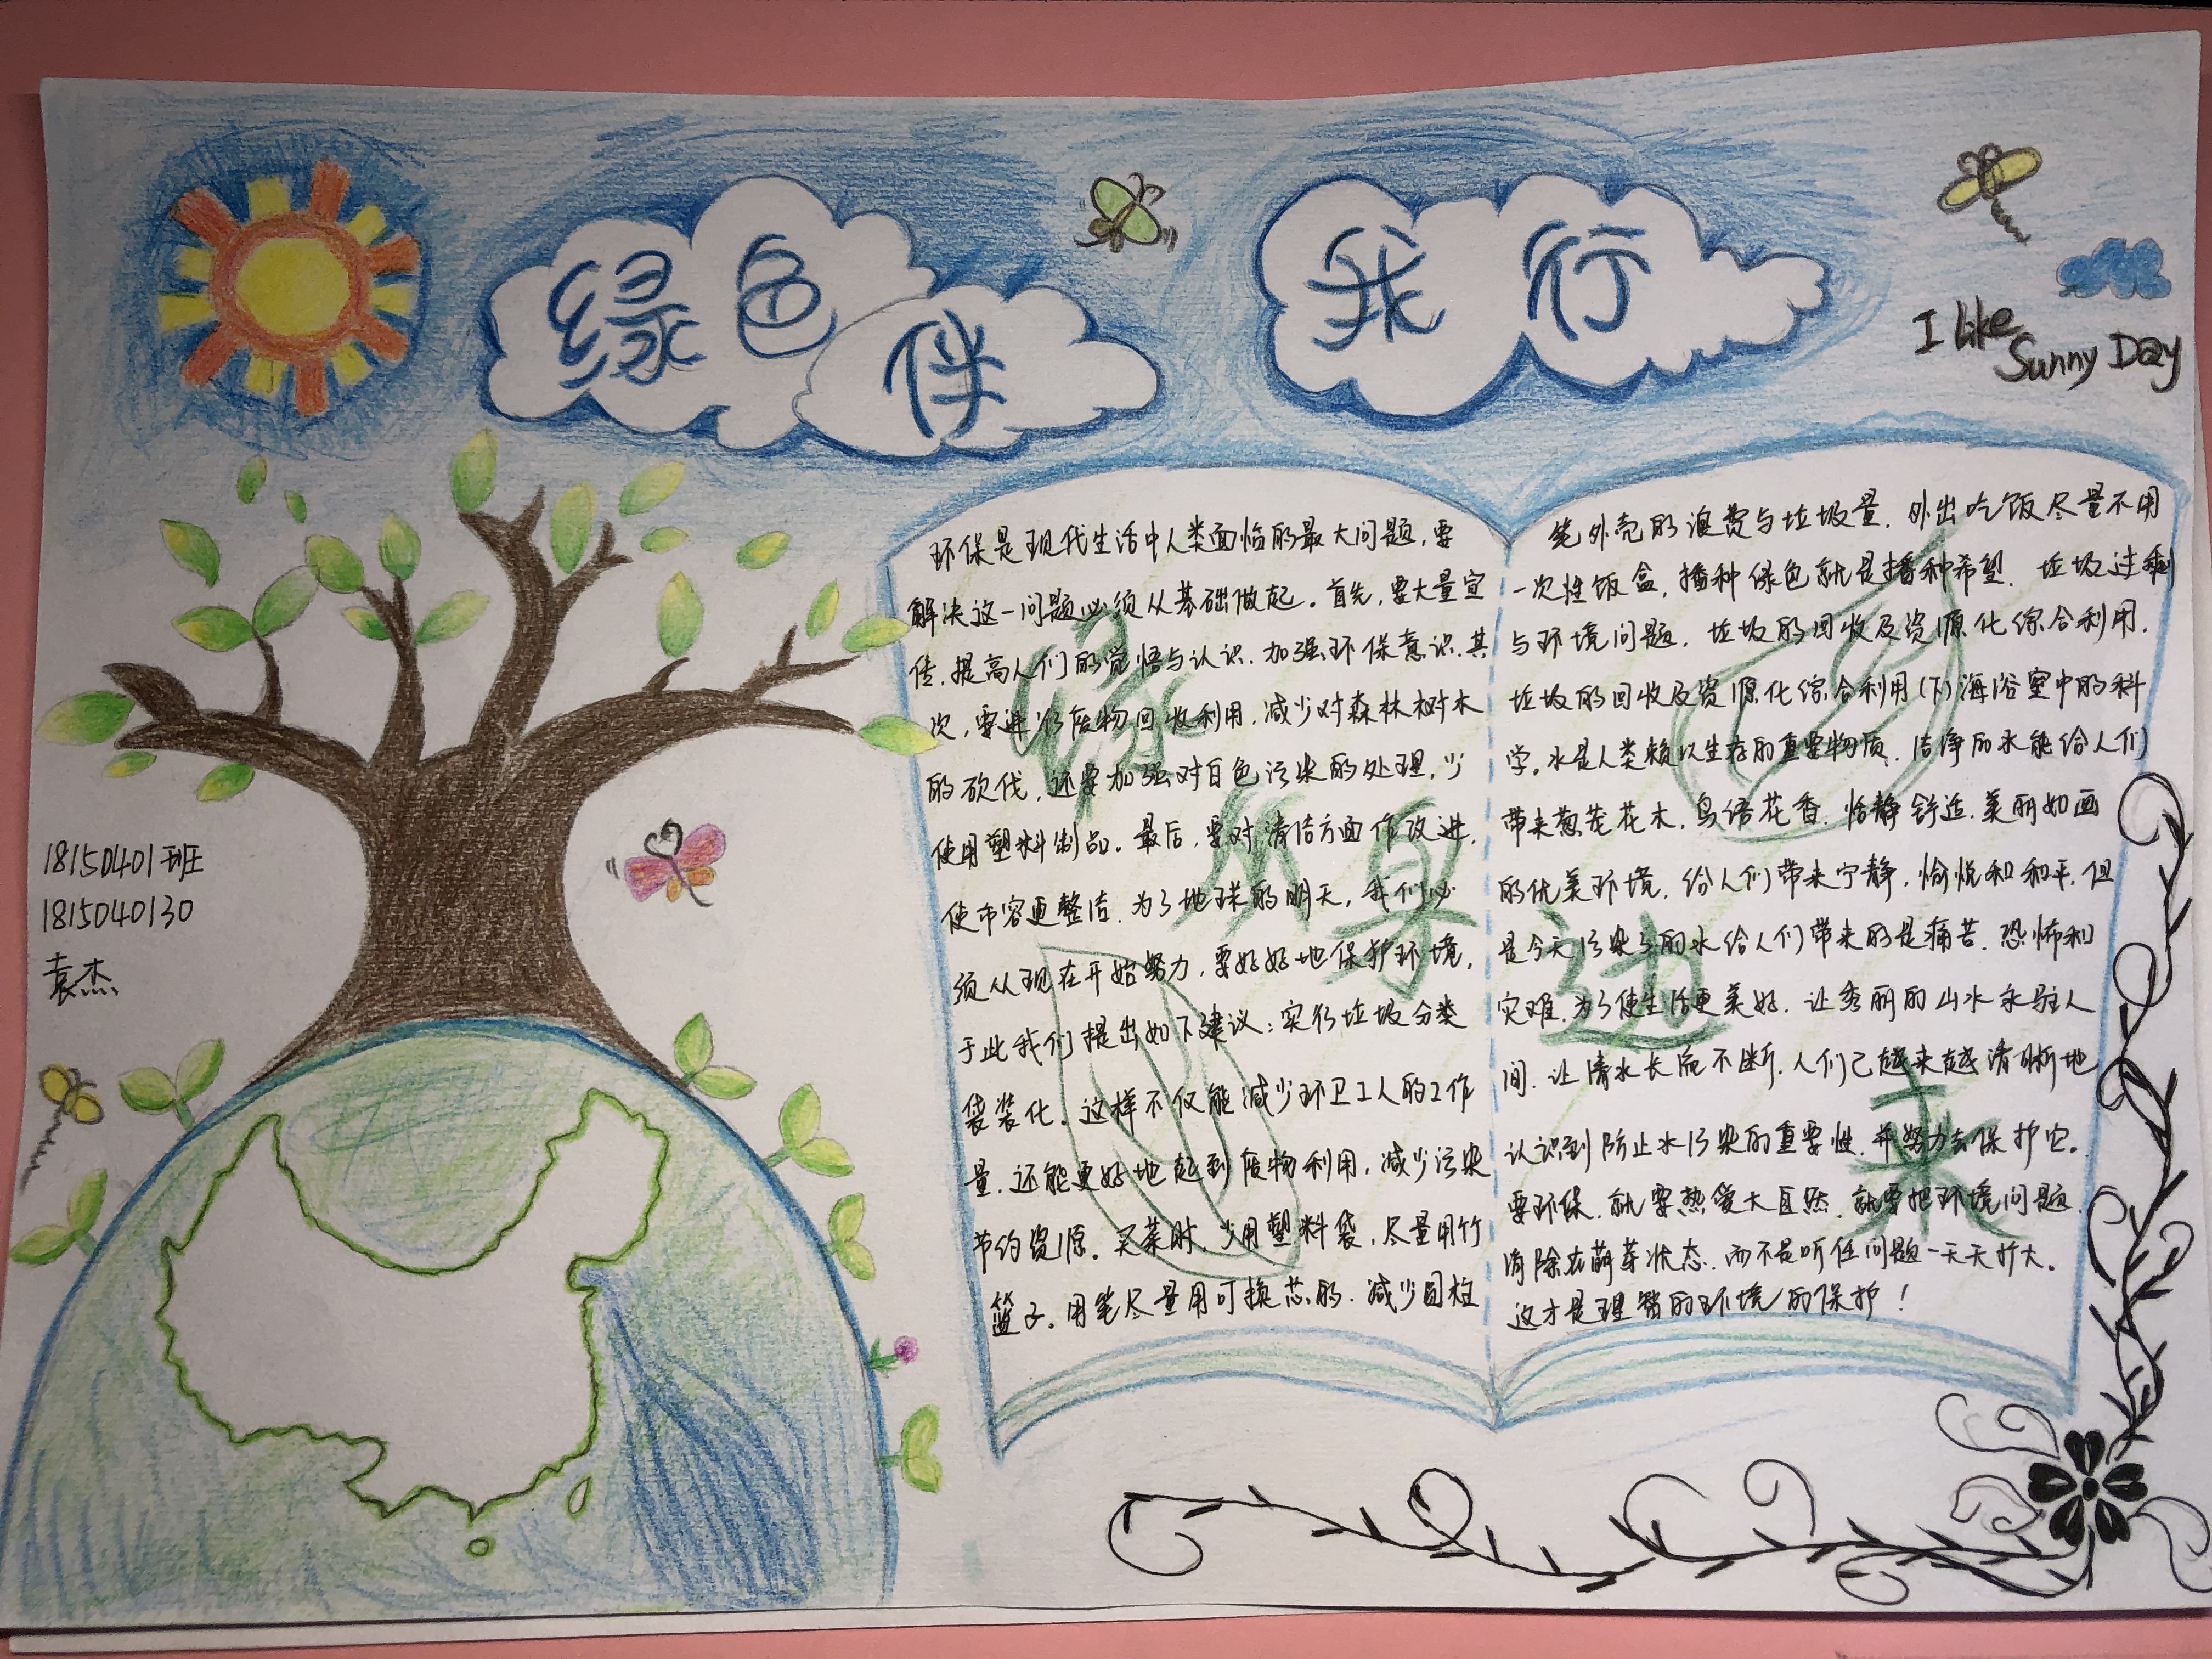 绿色
伴
我行
I like
Sunny Day
18150401班
1815040130
袁杰
环保是现代生活中人类面临的最大问题,要
解决这一问题必须从基础做起。首先,要大量宣
传,提高人们的觉悟与认识,加强环保意识.其
次,要进行废物回收利用,减少对森林树木
的砍伐,还要加强对白色污染的处理,少
使用塑料制品。最后,要对清洁方面作改进,
使市容更整洁.为了地球的明天,我们必
须从现在开始努力,要好好地保护环境,
于此我们提出如下建议:实行垃圾分类
袋装化.这样不仅能减少环卫工人的工作
量.还能更好地起到废物利用,减少污染
节约资源。买菜时,少用塑料袋,尽量用竹
篮子。用笔尽量用可换芯的.减少圆柱
笔外壳的浪费与垃圾量.外出吃饭尽量不用
一次性饭盒,播种绿色就是播种希望.垃圾过剩
与环境问题.垃圾的回收及资源化综合利用.
垃圾的回收及资源化综合利用(下)海浴室中的科
学。水是人类赖以生存的重要物质.洁净的水能给人们
带来葱茏花木,鸟语花香.恬静舒适.美丽如画
的优美环境.给人们带来宁静,愉悦和和平.但
是今天污染了的水给人们带来的是痛苦.恐怖和
灾难.为了使生活更美好.让秀丽的山水永驻人
间.让清水长流不断.人们已越来越清晰地
认识到防止水污染的重要性.并努力去保护它。
要环保.就要热爱大自然.就要把环境问题
消除在萌芽状态.而不是听任问题一天天扩大。
这才是理智的环境的保护!
绿色
从身
边
来